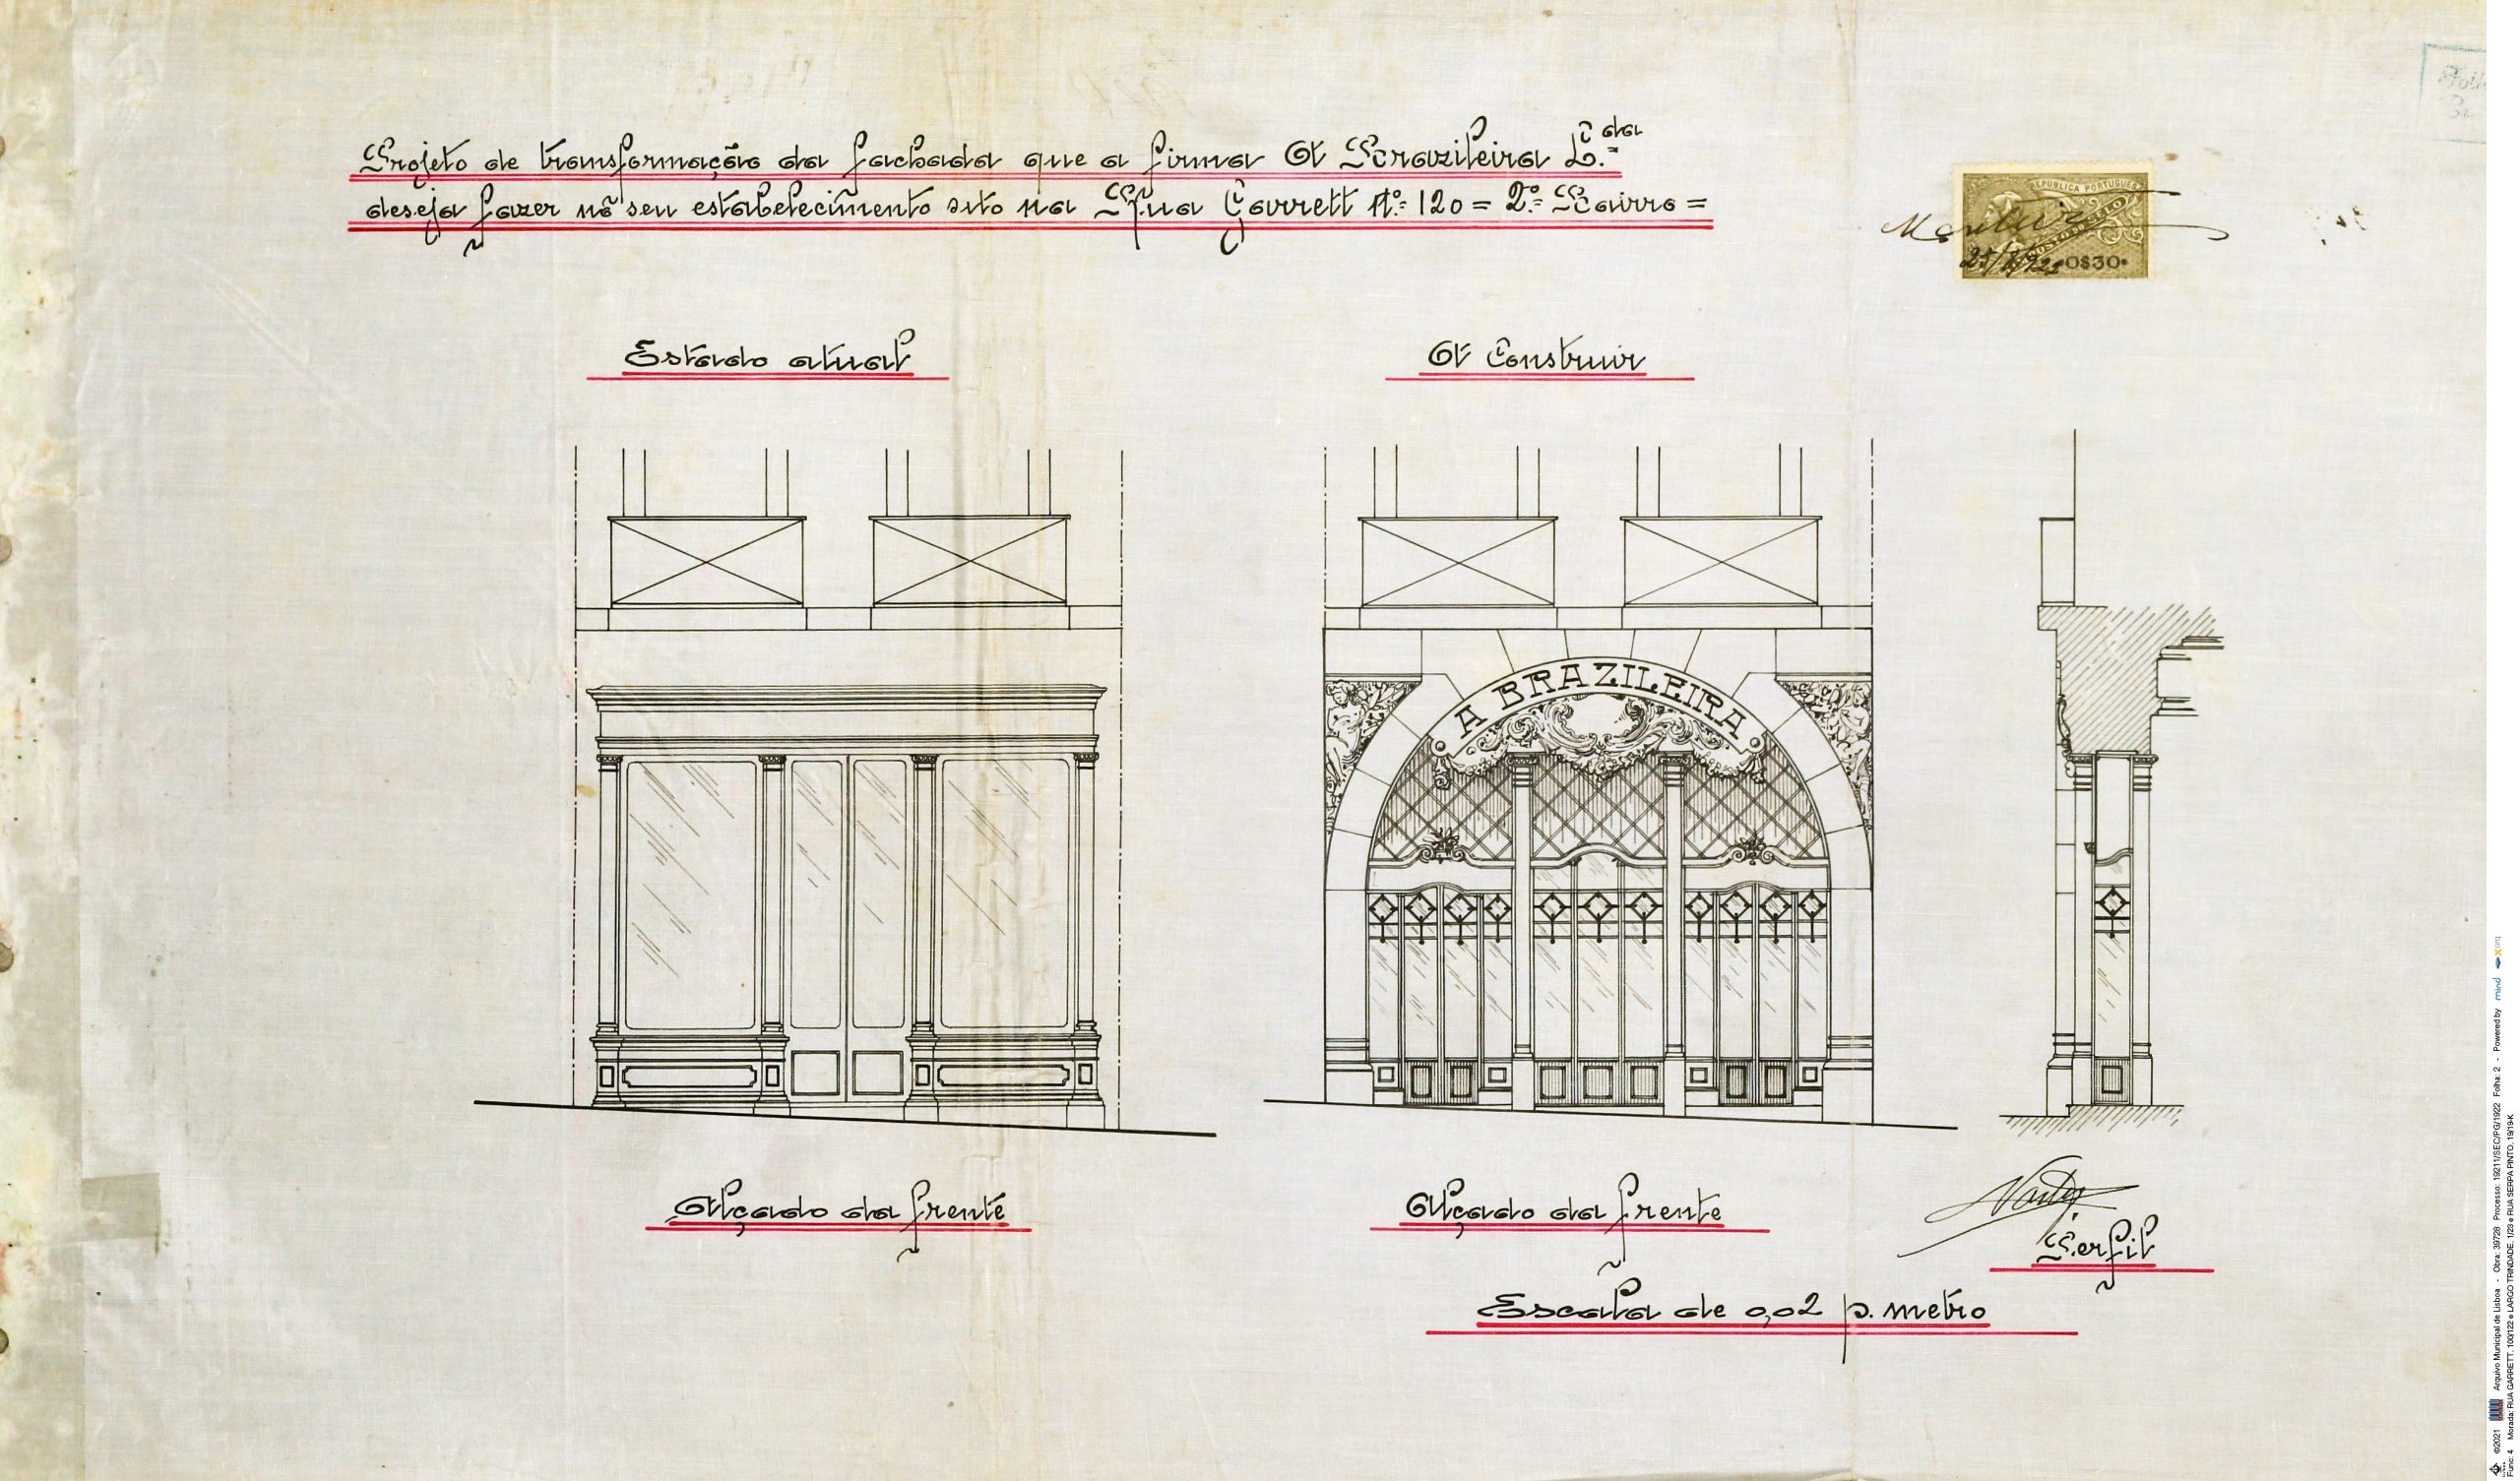 Projeto de transformação da fachada que a firma A Brazileira L.da
deseja fazer no seu estabelecimento sito na Rua Garrett Nº 120 = 2º Bairro =
REPUBLICA PORTUGUESA
IMPOSTO DO SELO
0$30
Estado atual
A Construir
A BRAZILEIRA
Alçado da frente
Alçado da frente
Perfil
Escala de 0,02 p. metro
©2021 Arquivo Municipal de Lisboa - Obra: 39728 Processo: 19211/SEC/PG/1922 Folha: 2 - Powered by mind
Func: 4 Morada: RUA GARRETT, 100/122 e LARGO TRINDADE, 1/23 e RUA SERPA PINTO, 19/19-K